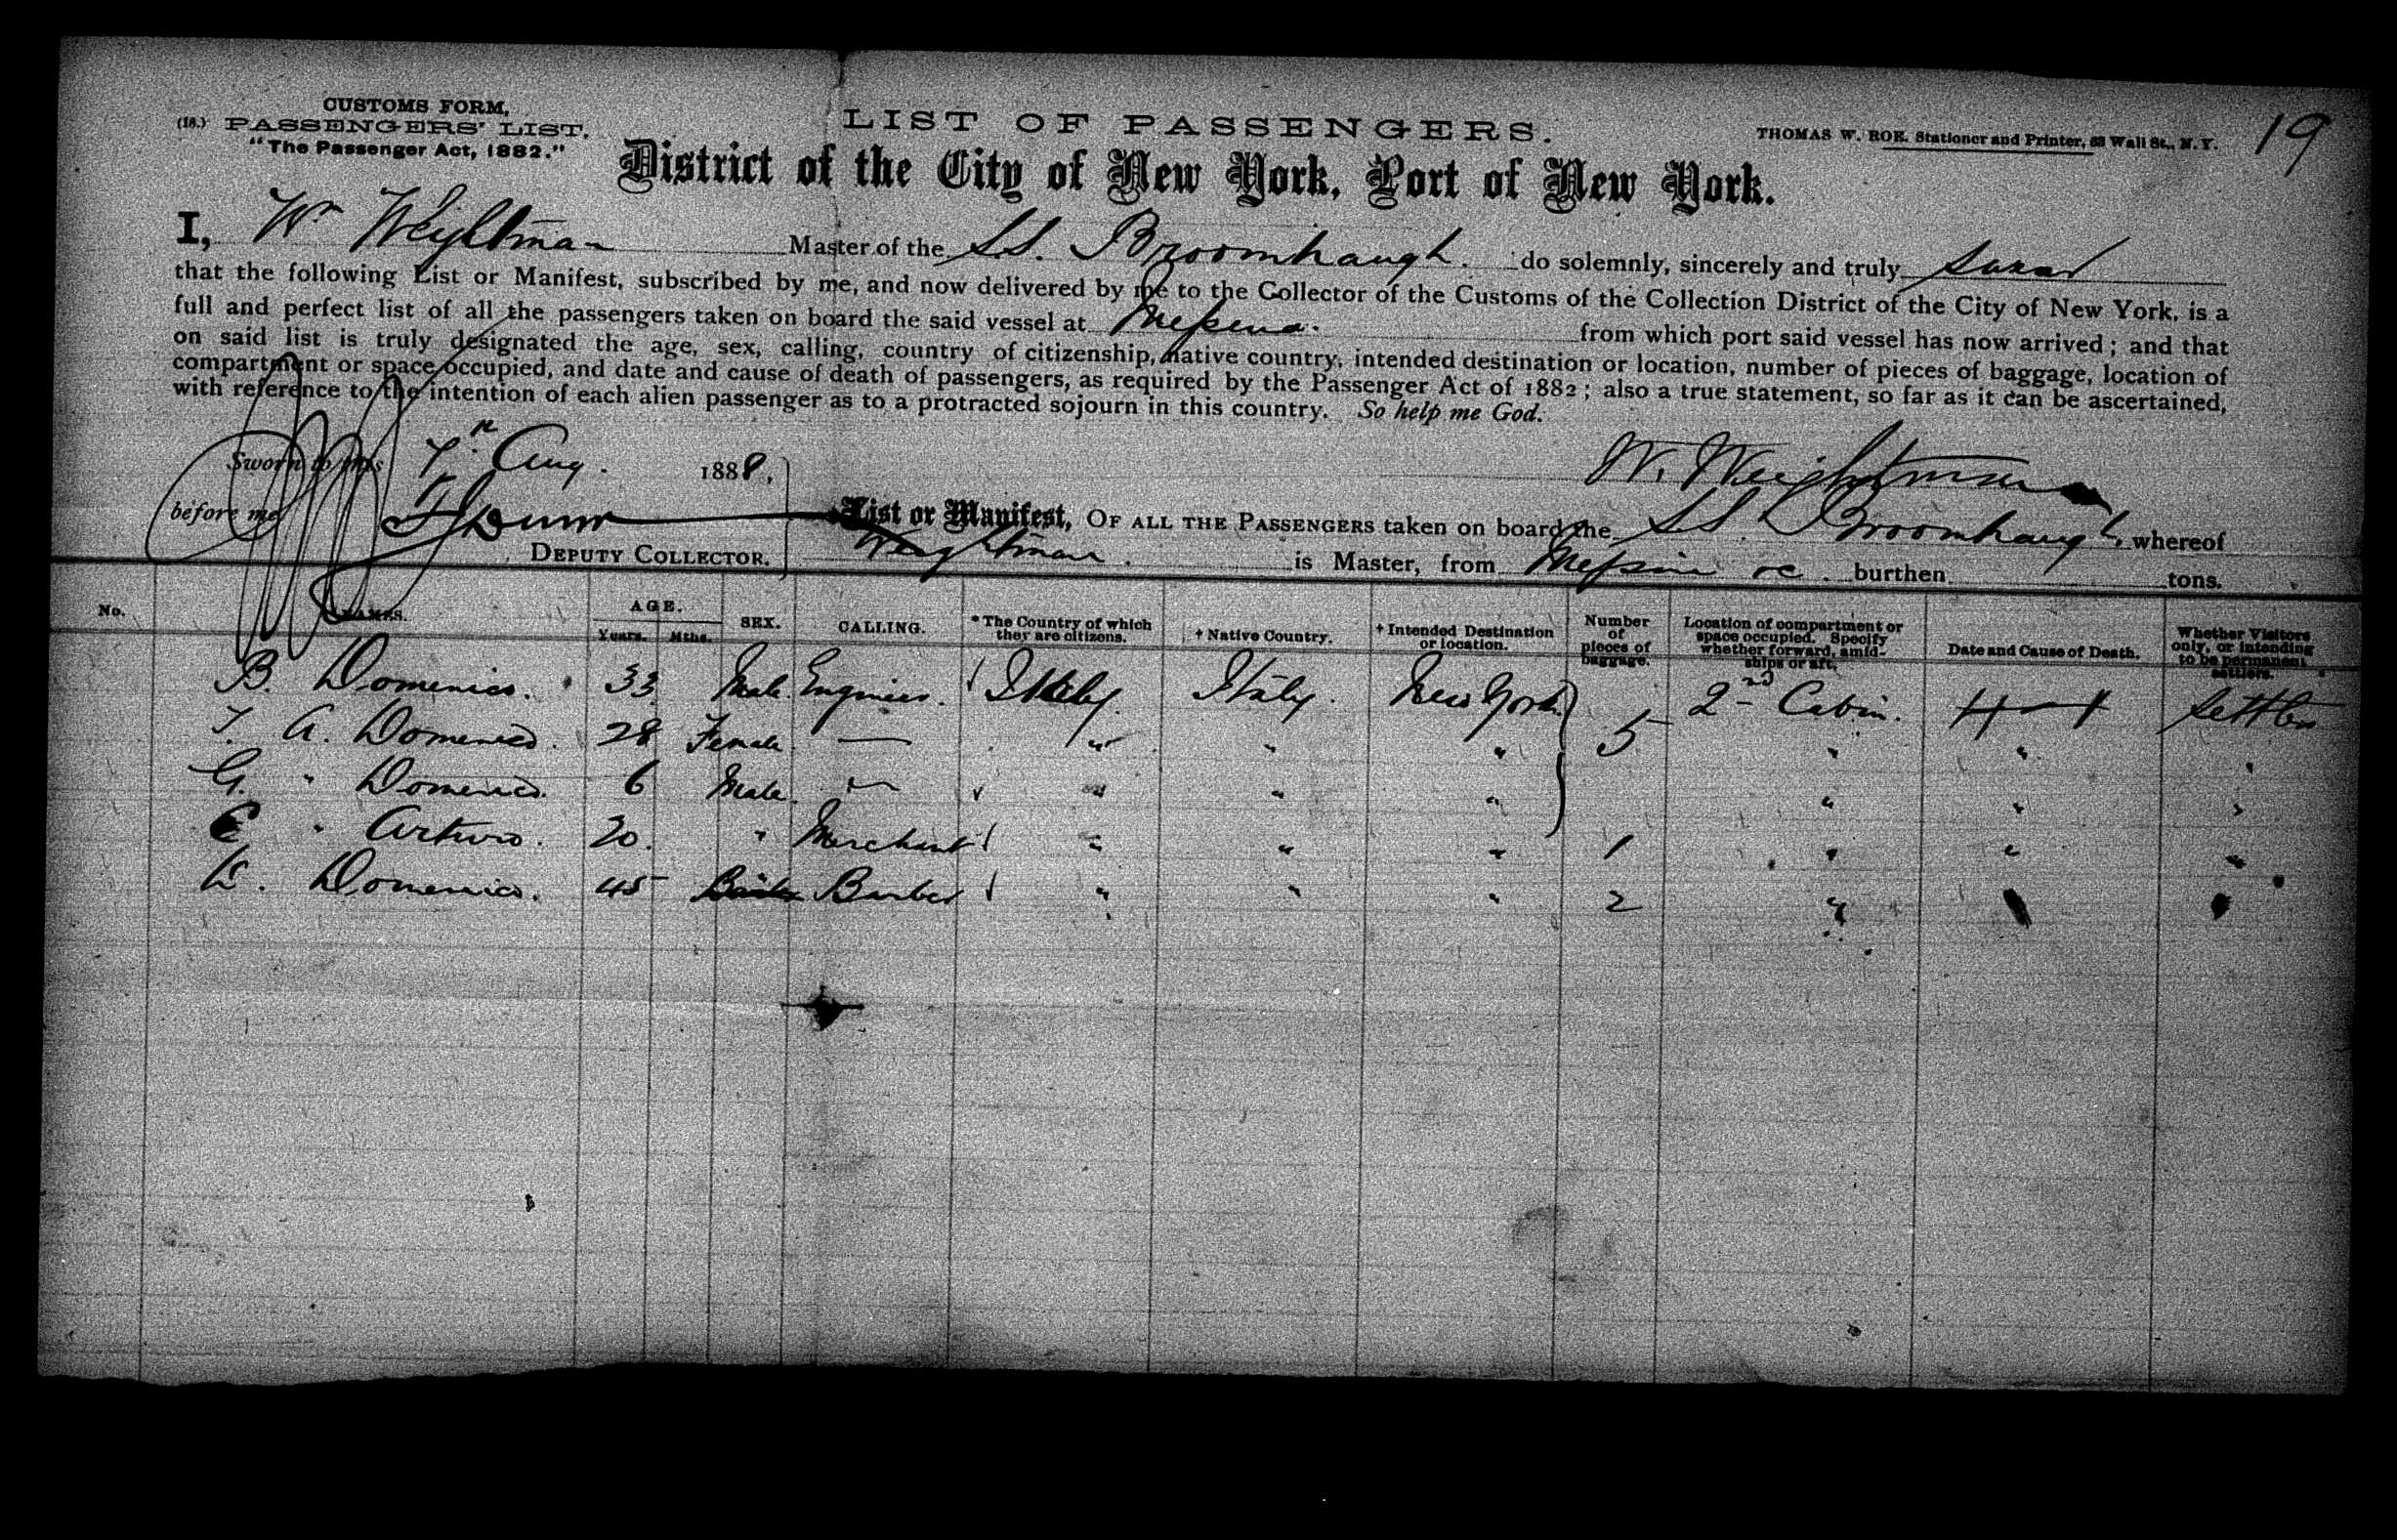 CUSTOMS FORM,
(18.) PASSENGERS' LIST.
"The Passenger Act, 1882."
LIST OF PASSENGERS.
THOMAS W. ROE, Stationer and Printer, 53 Wall St., N. Y.
19
District of the City of New York, Port of New York.
I, Wm Weightman Master of the S.S. Broomhaugh. do solemnly, sincerely and truly swear
that the following List or Manifest, subscribed by me, and now delivered by me to the Collector of the Customs of the Collection District of the City of New York, is a
full and perfect list of all the passengers taken on board the said vessel at Messina. from which port said vessel has now arrived; and that
on said list is truly designated the age, sex, calling, country of citizenship, native country, intended destination or location, number of pieces of baggage, location of
compartment or space occupied, and date and cause of death of passengers, as required by the Passenger Act of 1882; also a true statement, so far as it can be ascertained,
with reference to the intention of each alien passenger as to a protracted sojourn in this country. So help me God.
Sworn to this 7th Aug. 1888,
W. Weightman
before me
DEPUTY COLLECTOR.
List or Manifest, OF ALL THE PASSENGERS taken on board the S.S. Broomhaugh, whereof
Weightman. is Master, from Messina &c. burthen tons.
No. NAMES. AGE. Years. Mths. SEX. CALLING. *The Country of which they are citizens. † Native Country. † Intended Destination or location. Number of pieces of baggage. Location of compartment or space occupied. Specify whether forward, amidships or aft. Date and Cause of Death. Whether Visitors only, or intending to be permanent settlers.
B. Domenico. 33 Male. Engineer. Italy. Italy. New York 2nd Cabin. Settler
T. A. Domenico. 28 Female. — " " " 5 " "
G. " Domenico. 6 Male. — " " " " " "
E " Arturo. 20. " Merchant " " " 1 " " "
L. Domenico. 45 Barber " " " 2 "